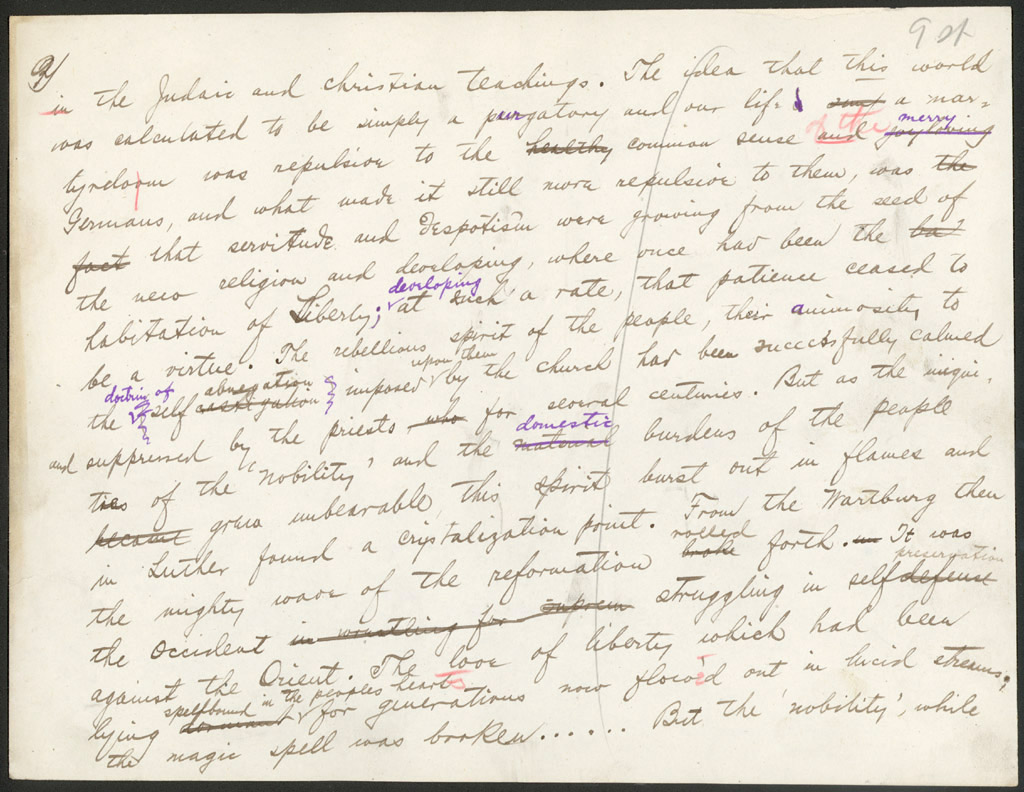 9 st
9/
in the Judaic and christian teachings. The idea that this world
was calculated to be simply a purgatory and our life a mar=
merry
tyrdoom was repulsive to the healthy common sense and of the joyloving
Germans, and what made it still more repulsive to them, was the
fact that servitude and despotism were growing from the seed of
the new religion and developing, where once had been the ha
developing
habitation of Liberty; at such a rate, that patience ceased to
be a virtue. The rebellious spirit of the people, their animosity to
doctrin of abnegation upon them
the self imposed by the church had been successfully calmed
and suppressed by the priests who for several centuries. But as the iniqui-
domestic
ties of the 'nobility' and the material burdens of the people
became grew unbearable, this spirit burst out in flames and
in Luther found a crystalezation point. From the Wartburg then
rolled
the mighty wave of the reformation broke forth. It was
preservation
the Occident in wrestling for suprem struggling in self defense
against the Orient. The love of liberty which had been
spellbound in the peoples hearts
lying dormant for generations now flowed out in lucid streams;
the magic spell was broken...... But the 'nobility', while